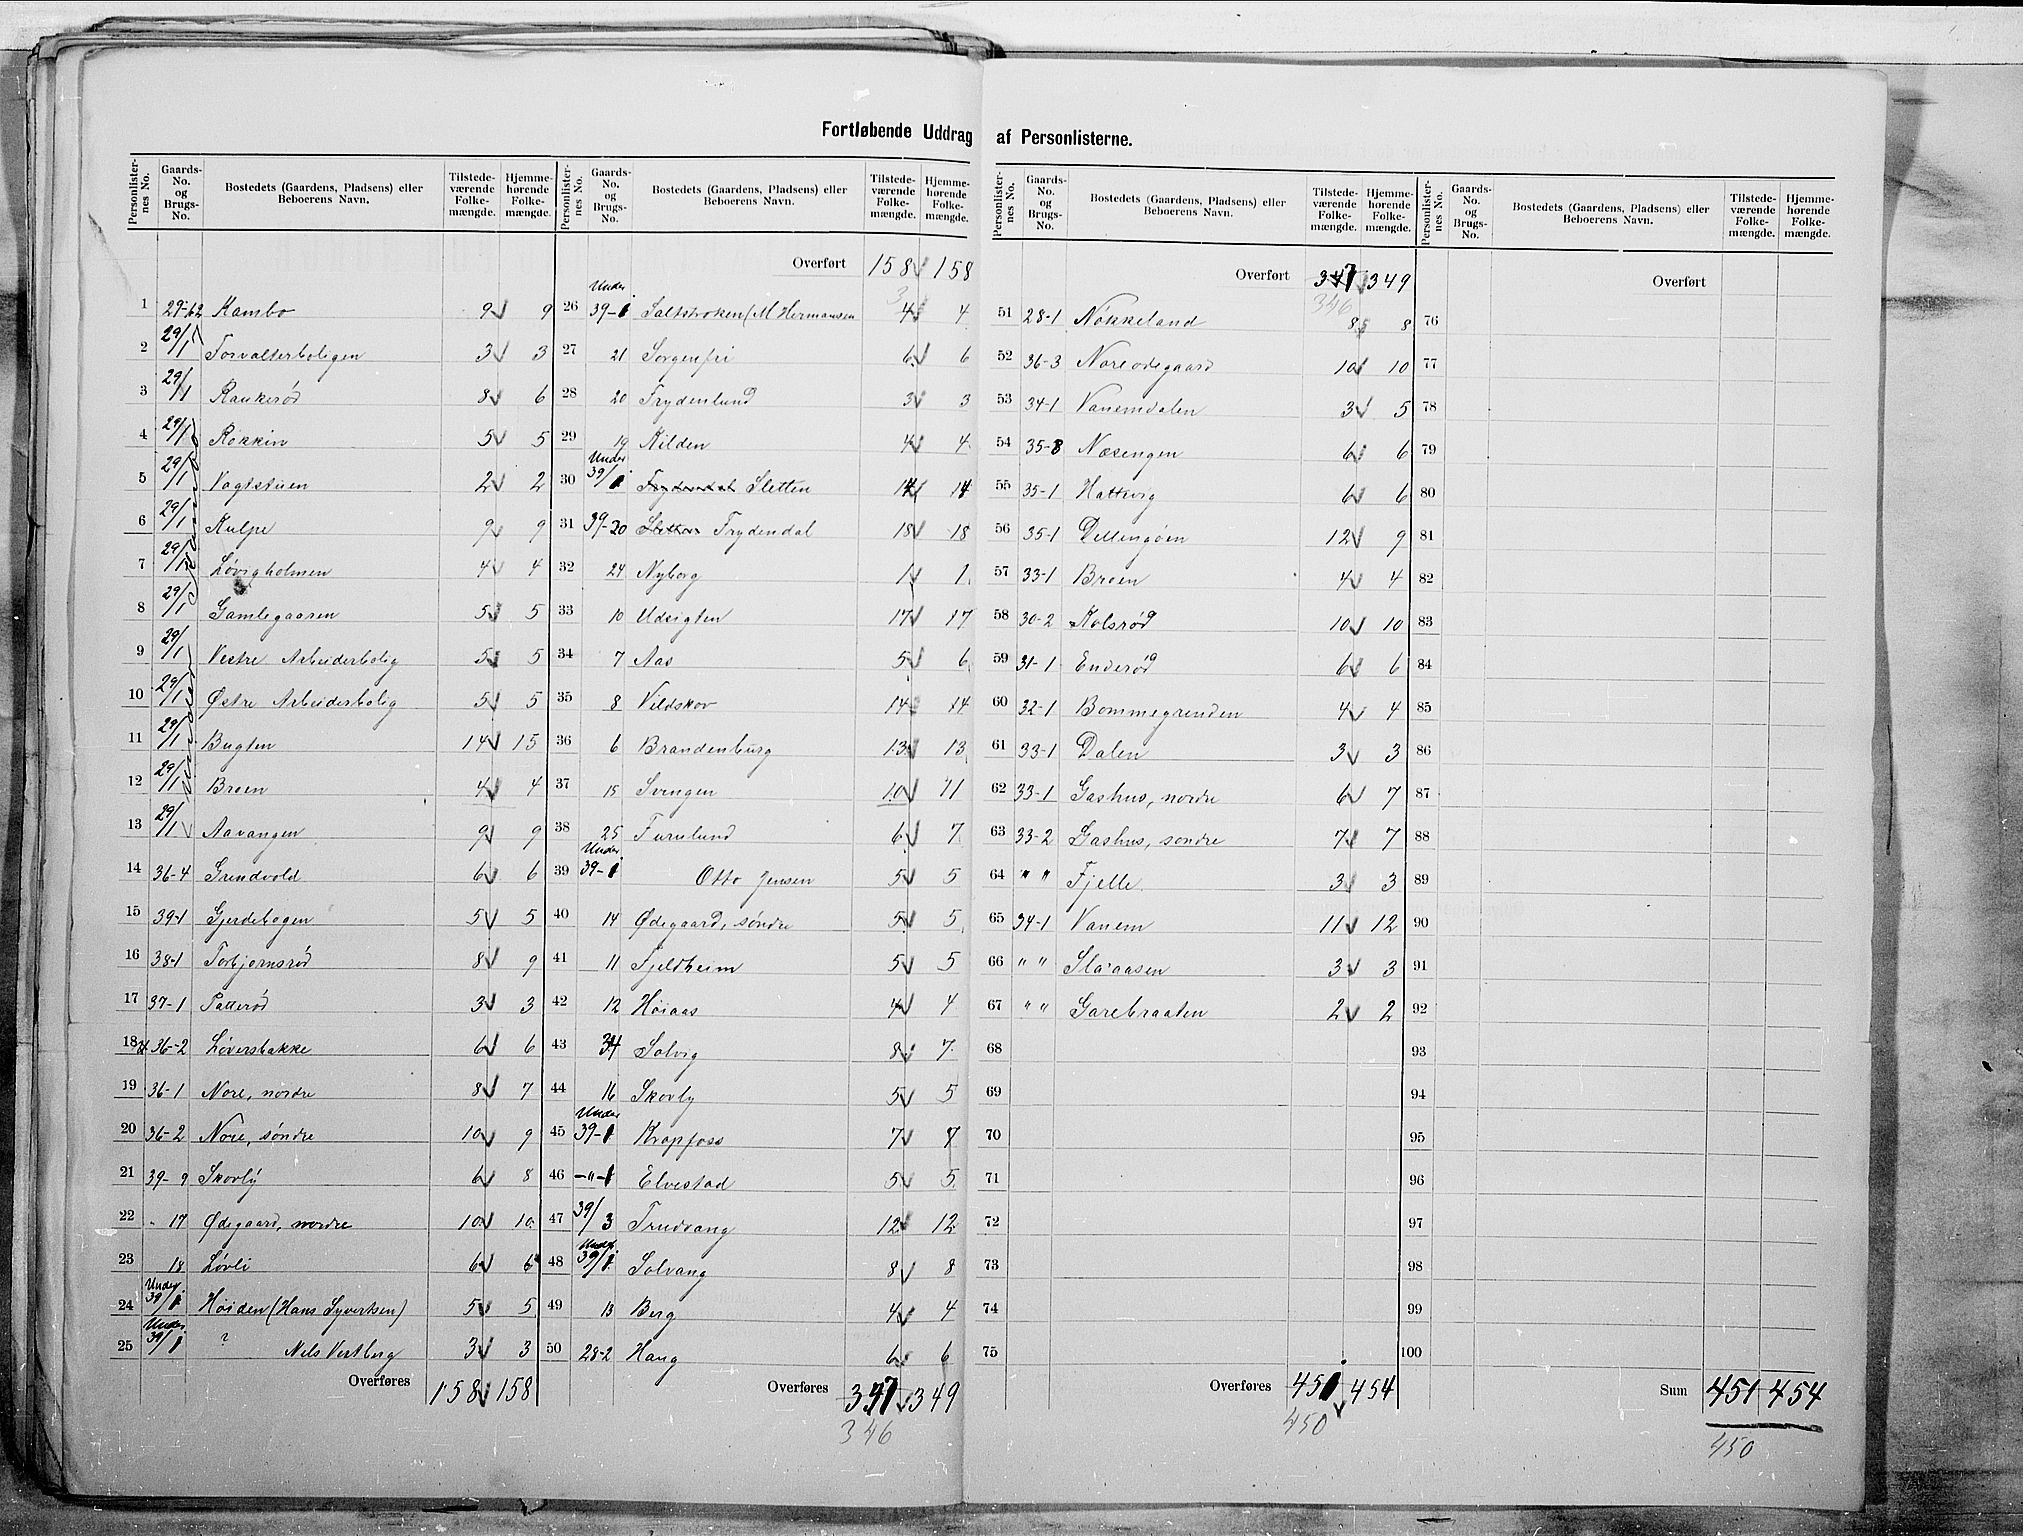 Fortløbende Uddrag af Personlisterne.
Personlister-nes No. | Gaards-No. og Brugs-No. | Bostedets (Gaardens, Pladsens) eller Beboerens Navn. | Tilstede-værende Folke-mængde. | Hjemme-hørende Folke-mængde.
1 29-62 Kambo 9 9
2 29/1 Forvalterboligen 3 3
3 29/1 Raukerød 8 6
4 29/1 Rokkin 5 5
5 29/1 Vagtstuen 2 2
6 29/1 Kulpe 9 9
7 29/1 Løvigholmen 4 4
8 29/1 Gamlegaasen 5 5
9 29/1 Vestre Arbeiderbolig 5 5
10 29/1 Østre Arbeiderbolig 5 5
11 29/1 Bugten 14 15
12 29/1 Broen 4 4
13 29/1 Aavangen 9 9
14 36-4 Grindvold 6 6
15 39-1 Gjerdebogen 5 5
16 38-1 Torbjørnsrød 8 9
17 37-1 Patterød 3 3
18 36-2 Løversbakke 6 6
19 36-1 Nore, nordre 8 7
20 36-2 Nore, søndre 10 9
21 39-9 Skovly 6 8
22 " 17 Ødegaard, nordre 10 10
23 18 Løvli 6 6
24 Under 39/1 Høiden (Hans Syvertsen) 5 5
25 Under 39/1 ? Nils Vestberg 3 3
Overføres 158 158
Personlister-nes No. | Gaards-No. og Brugs-No. | Bostedets (Gaardens, Pladsens) eller Beboerens Navn. | Tilstede-værende Folke-mængde. | Hjemme-hørende Folke-mængde.
Overført 158 158
3
26 Under 39-1 Saltstroken (M Hermansen 4 4
27 21 Sorgenfri 6 6
28 20 Frydenlund 3 3
29 19 Kilden 4 4
30 Under 39/1 Frydendal Sletten 14 14
31 39-20 Sletten Frydendal 18 18
32 24 Nyborg 1 1
33 10 Udsigten 17 17
34 7 Aas 5 6
35 8 Vildskov 14 14
36 6 Brandenburg 13 13
37 15 Svingen 10 11
38 25 Furulund 6 7
39 Under 39-1 Otto Jensen 5 5
40 14 Ødegaard, søndre 5 5
41 11 Fjeldheim 5 5
42 12 Høiaas 4 4
43 34 Solvig 8 7
44 16 Skovly 5 5
45 Under 39-1 Krapfoss 7 7
46 -"-1 Elvestad 5 5
47 39/3 Trudvang 12 12
48 Under 39/1 Solvang 8 8
49 13 Berg 4 4
50 28-2 Haug 6 6
Overføres 347 349
346
Personlister-nes No. | Gaards-No. og Brugs-No. | Bostedets (Gaardens, Pladsens) eller Beboerens Navn. | Tilstede-værende Folke-mængde. | Hjemme-hørende Folke-mængde.
Overført 347 349
346
51 28-1 Nøkkeland 8 8
52 36-3 Noreødegaard 10 10
53 34-1 Vanemdalen 3 5
54 35-8 Næsengen 6 6
55 35-1 Hattevig 6 6
56 35-1 Dillingøen 12 9
57 33-1 Broen 4 4
58 30-2 Kolsrød 10 10
59 31-1 Enderød 6 6
60 32-1 Bommegrinden 4 4
61 33-1 Dalen 3 3
62 33-1 Gashus, nordre 6 7
63 33-2 Gashus, søndre 7 7
64 " " Fjelle 3 3
65 34-1 Vanem 11 12
66 " " Slaraasen 3 3
67 " " Garebraaten 2 2
68
69
70
71
72
73
74
75
Overføres 451 454
450
Personlister-nes No. | Gaards-No. og Brugs-No. | Bostedets (Gaardens, Pladsens) eller Beboerens Navn. | Tilstede-værende Folke-mængde. | Hjemme-hørende Folke-mængde.
Overført
76
77
78
79
80
81
82
83
84
85
86
87
88
89
90
91
92
93
94
95
96
97
98
99
100
Sum 451 454
450